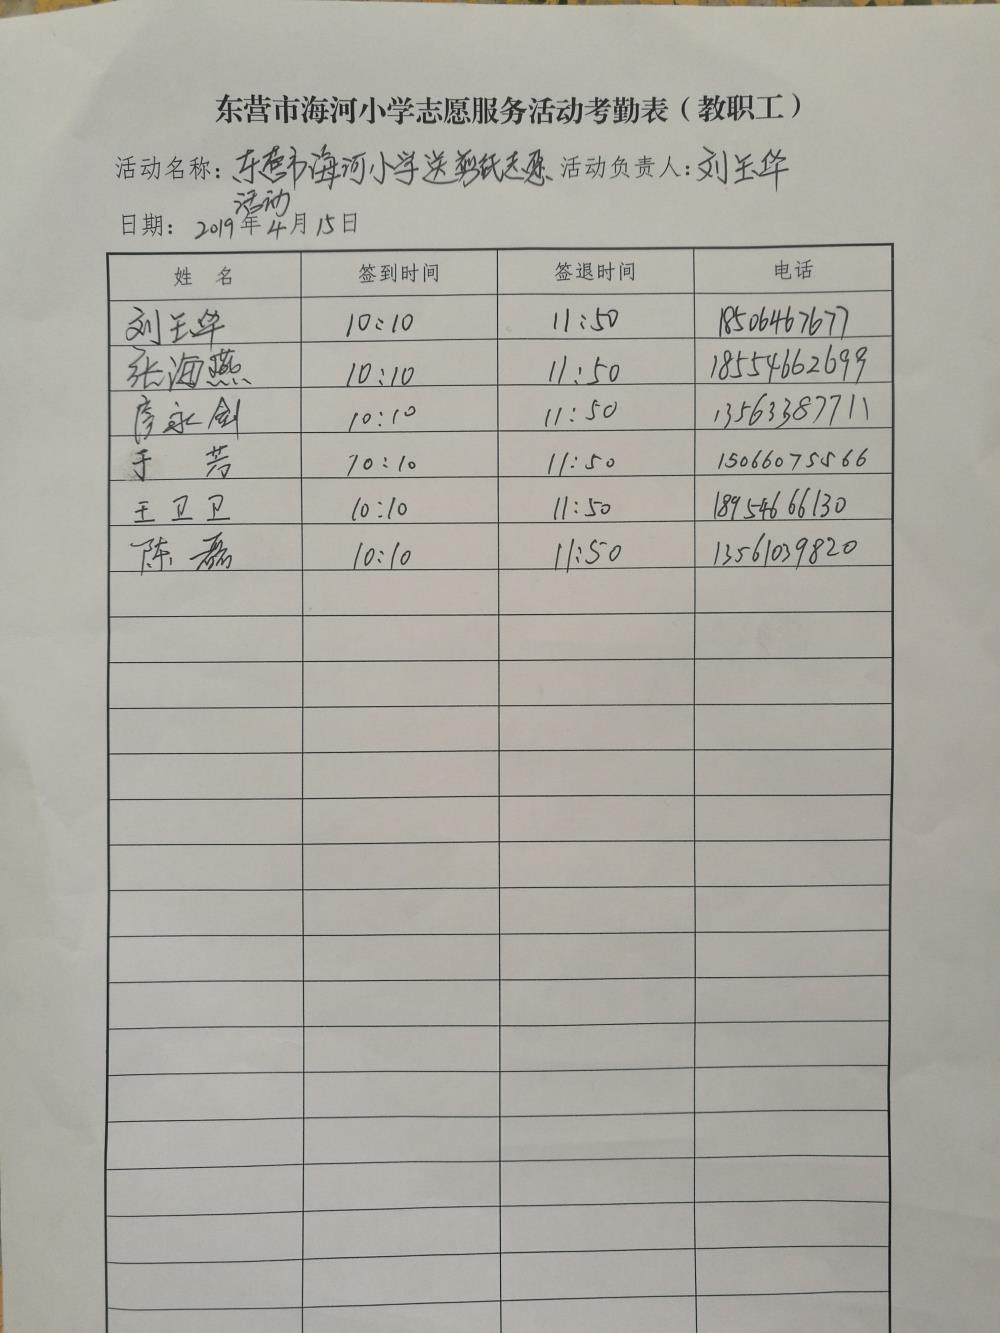 东营市海河小学志愿服务活动考勤表（教职工）
活动名称：东营市海河小学送剪纸志愿 活动负责人：刘玉华
活动
日期： 2019年4月15日
姓 名 签到时间 签退时间 电话
刘玉华 10:10 11:50 18506467677
张海燕 10:10 11:50 18554662699
永剑 10:10 11:50 13563387711
于 芳 10:10 11:50 15066075566
王卫卫 10:10 11:50 18954666130
陈磊 10:10 11:50 13561039820